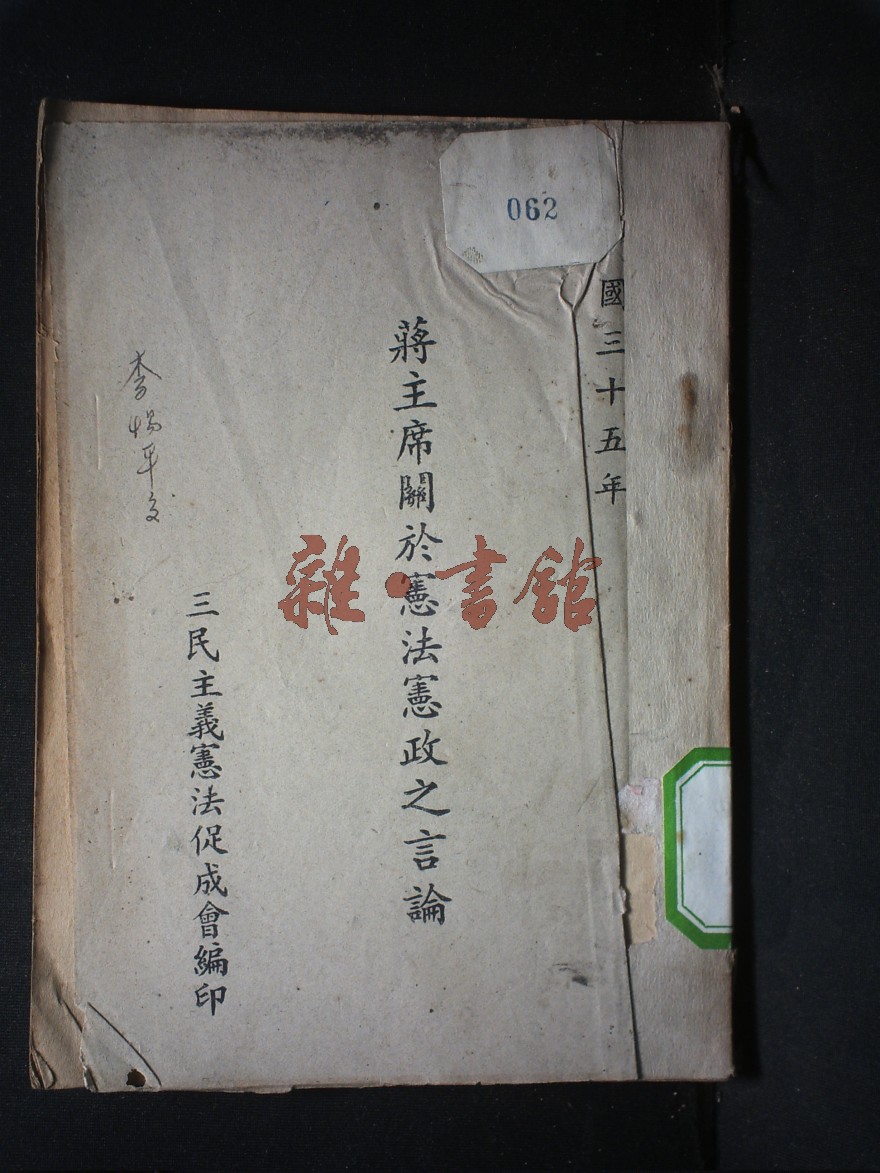 062
國三十五年
蔣主席關於憲法憲政之言論
三民主義憲法促成會編印
雜·書館